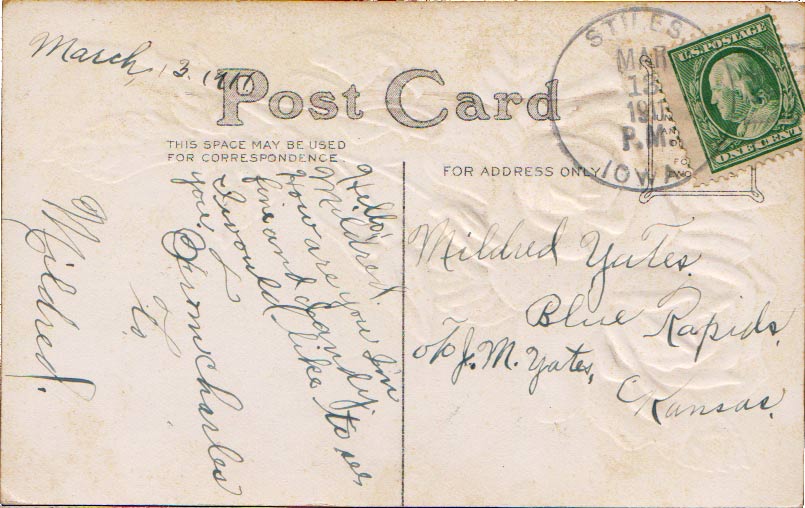 March, 13. 1911
Post Card
THIS SPACE MAY BE USED
FOR CORRESPONDENCE
FOR ADDRESS ONLY
STILES,
MAR
13
P.M.
IOWA
U.S. POSTAGE
ONE CENT
Hello,
Mildred.
How are you I'm
fine and dandy.
I would like to see
you.
From Charles
to
Mildred.
Mildred Yates.
Blue Rapids,
c/o J. M. Yates,
Kansas.